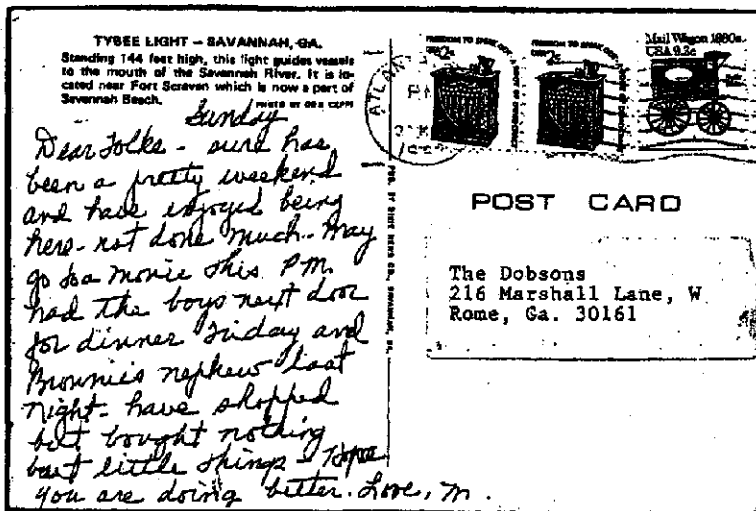 TYBEE LIGHT — SAVANNAH, GA.
Standing 144 feet high, this light guides vessels
to the mouth of the Savannah River. It is lo-
cated near Fort Screven which is now a part of
Savannah Beach.
PHOTO BY
Sunday
Dear Folks - sure has
been a pretty weekend
and have enjoyed being
here - not done much - May
go to a movie this P.M.
had the boys next door
for dinner Friday and
Brownie's nephew last
night - have shopped
but bought nothing
but little things - Hope
you are doing better. Love, M.
PUB. BY DIXIE NEWS CO., SAVANNAH, GA.
ATLAN
FREEDOM TO SPEAK OUT
USA 2c
FREEDOM TO SPEAK OUT
USA 2c
Mail Wagon 1880s
USA 9.3c
POST CARD
The Dobsons
216 Marshall Lane, W
Rome, Ga. 30161